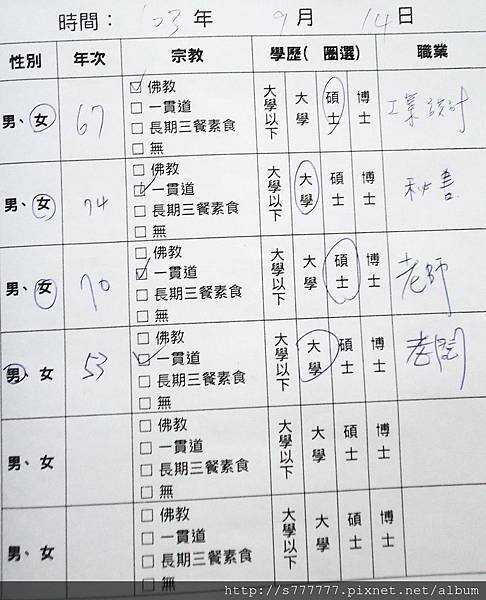 時間：103 年 9 月 14 日
性別 年次 宗教 學歷( 圈選) 職業
男、女 67 佛教 大學以下 大學 碩士 博士 工業設計
一貫道
長期三餐素食
無
男、女 74 佛教 大學以下 大學 碩士 博士 秘書
一貫道
長期三餐素食
無
男、女 70 佛教 大學以下 大學 碩士 博士 老師
一貫道
長期三餐素食
無
男、女 53 佛教 大學以下 大學 碩士 博士 老闆
一貫道
長期三餐素食
無
男、女 佛教 大學以下 大學 碩士 博士
一貫道
長期三餐素食
無
男、女 佛教 大學以下 大學 碩士 博士
一貫道
長期三餐素食
無
http://s777777.pixnet.net/album